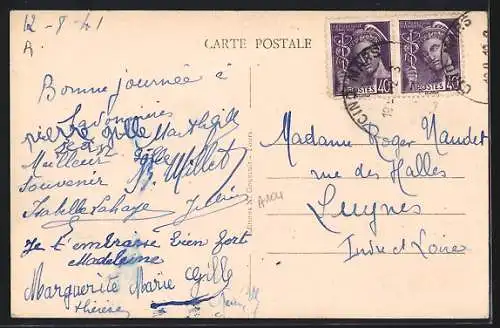 12-8-41
A
CARTE POSTALE
Bonne journée à
Savonnières
pierre gille Marthgille
Jean
Meilleur
souvenir M. Millet
Isabelle Lahaye
Je t'embrasse bien fort
Madeleine
Marguerite Marie Gille
thérèse
POSTES 40
POSTES 40
CINQ-MARS
Madame Roger Naudet
rue des Halles
Luynes
Indre et Loire